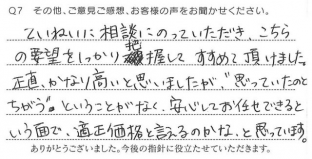 Q7 その他、ご意見ご感想、お客様の声をお聞かせください。
ていねいに相談にのっていただき、こちら
の要望をしっかり把握して すすめて頂けました。
正直、かなり高いと思いましたが、"思っていたのと
ちがう"。ということがなく、安心してお任せできると
いう面で、適正価格と言えるのかな、と思っています。
ありがとうございました。今後の指針に役立たせていただきます。